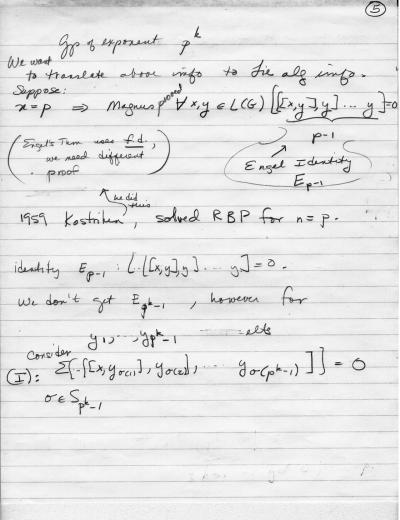 ⑤
Gps of exponent p^k
We want
to translate above info to Lie alg info.
Suppose:
n = p ⇒ Magnus proved ∀ x, y ∈ L(G) [[[x,y],y] ... y] = 0
p-1
(Engel's Thm uses f.d.,
we need different
proof)
Engel Identity
E_{p-1}
he did this
1959 Kostrikin, solved RBP for n = p.
identity E_{p-1} : [..[[x,y],y] .... y] = 0.
We don't get E_{p^k-1}, however for
y_1, ..., y_{p^k-1} elts
Consider
(I): Σ[..[[x,y_{σ(1)}], y_{σ(2)}], .... y_{σ(p^k-1)}]] = 0
σ ∈ S_{p^k-1}